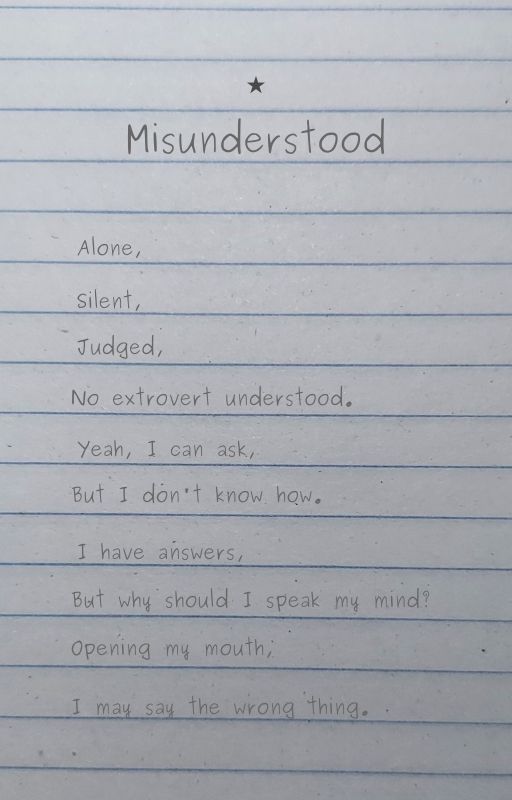 ★
Misunderstood
Alone,
Silent,
Judged,
No extrovert understood.
Yeah, I can ask,
But I don't know how.
I have answers,
But why should I speak my mind?
Opening my mouth,
I may say the wrong thing.